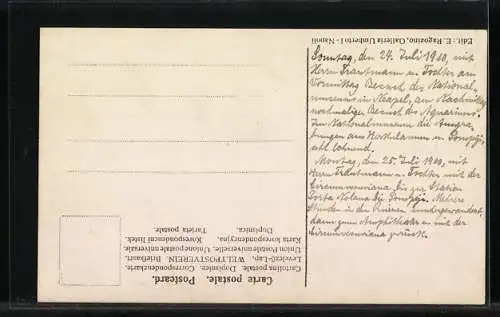 Edit.: E. Ragozino, Galleria Umberto I - Napoli
Sonntag, den 24. Juli 1910, mit
Herrn Trautmann u. Tochter am
Vormittag Besuch des National-
museums in Neapel, am Nachmittag
nochmaliger Besuch des Aquariums.
Im Nationalmuseum die Ausgra-
bungen aus Herkulanum u. Pompeji
sehr lohnend.
Montag, den 25. Juli 1910, mit
Herrn Trautmann u. Tochter mit der
Circumvesuviana bis zur Station
Porta Nolana bei Pompeji. Mehrere
Stunden in den Ruinen umhergewandert,
dann zum Amphitheater u. mit der
Circumvesuviana zurück.
Carte postale. Postcard.
Cartolina postale. Dopisnice. Correspondenzkarte.
Levelező-Lap. WELTPOSTVEREIN. Briefkaart.
Union Postale Universelle. Unione postale universale.
Karta korespondencyjna. Korespondent listek.
Dopisnica. Tarjeta postale.